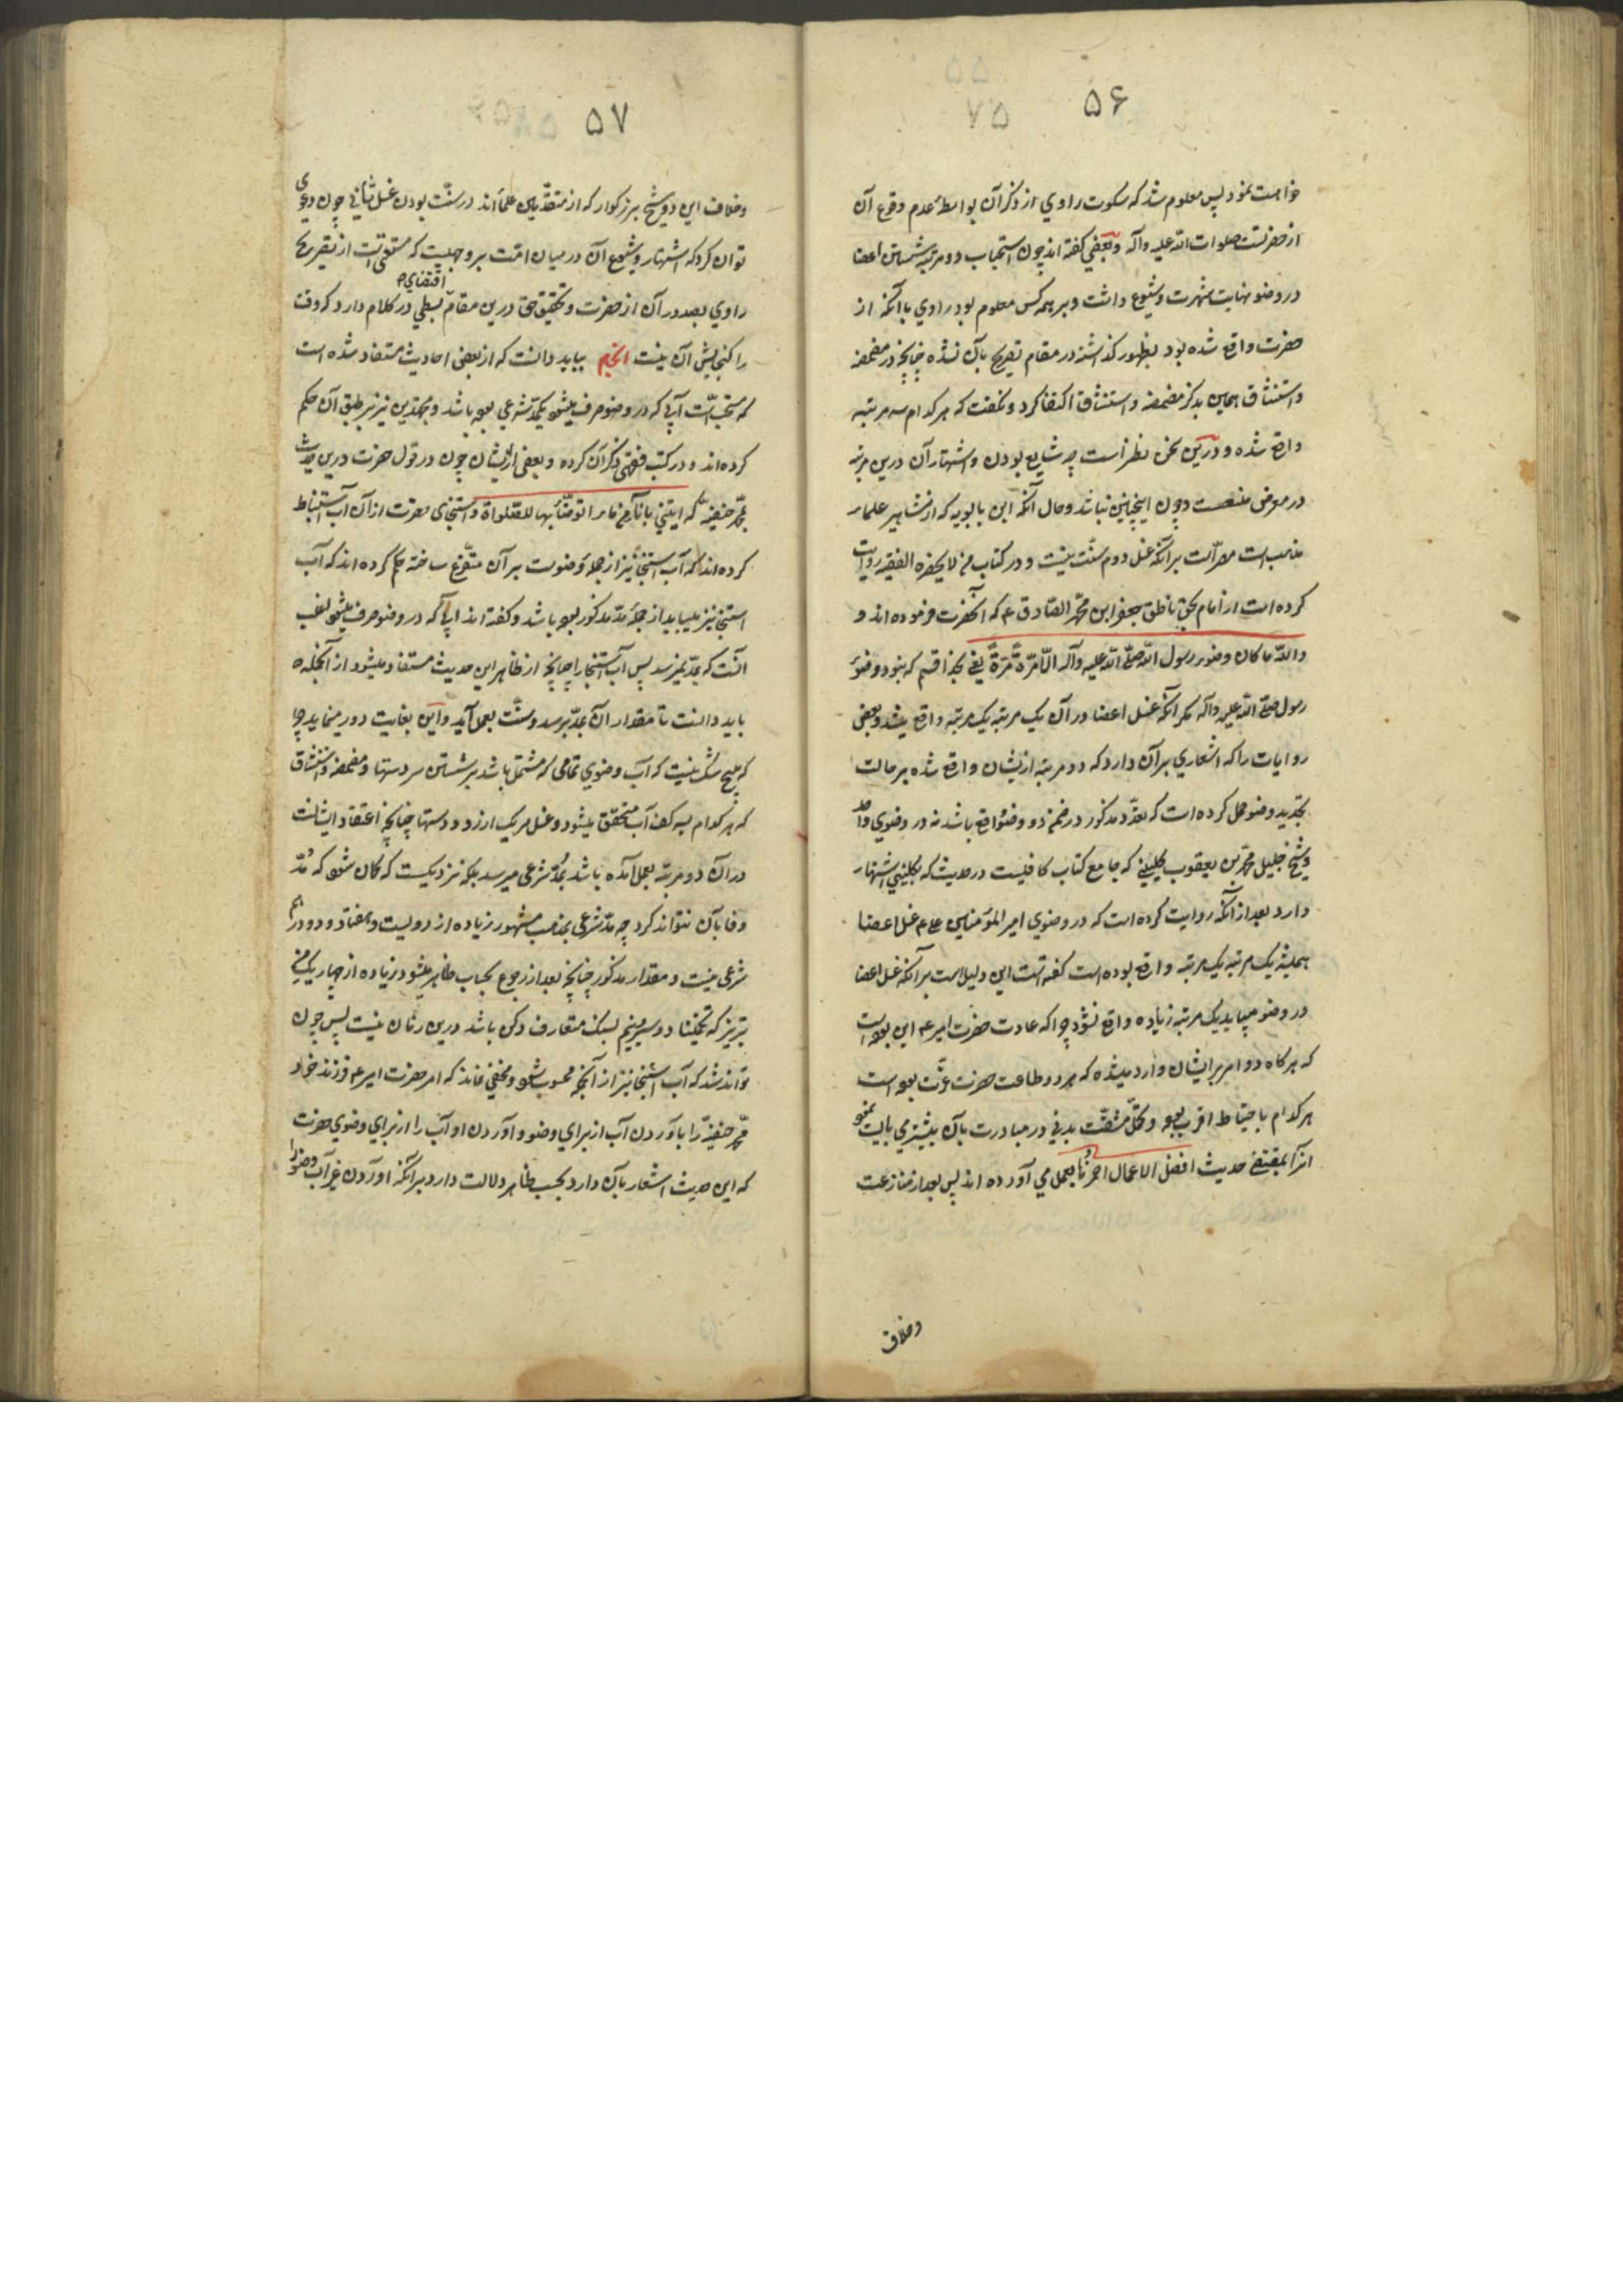 ۵۶
خواهست نمود پس معلوم شد که سکوت راوي از ذکر آن بواسطهٔ عدم وقوع آن
از حضرتست صلوات الله علیه وآله وبعضي گفته اند چون استحباب دو مرتبه شستن اعضا
در وضو نهایت شهرت وشیوع داشت وبر همه کس معلوم بود راوي با آنکه از
حضرت واقع شده بود بظهور گذاشته در مقام تصریح بآن نشده چنانچه در مضمضه
واستنشاق همین بذکر مضمضه واستنشاق اکتفا کرد ونگفت که هر کدام سه مرتبه
واقع شده ودرین سخن نظر است چه شایع بودن واشتهار آن درین مرتبه
در معرض منعست وچون اینچنین نباشد وحال آنکه ابن بابویه که از مشاهیر علماء
مذهب است مصرّ است بر آنکه غسل دوم سنّت نیست ودر کتاب من لا یحضره الفقیه روایت
کرده است از امام بحق ناطق جعفر ابن محمّد الصّادق ع که آنحضرت فرموده اند و
والله ما کان وضوء رسول الله صلّی الله علیه وآله الّا مَرّةً مَرّةً یعني بخدا قسم که نبود وضوء
رسول صلّی الله علیه وآله مگر آنکه غسل اعضا در آن یک مرتبه یک مرتبه واقع میشد وبعضی
روایات را که اشعاري بر آن دارد که دو مرتبه ازیشان واقع شده بر حالت
تجدید وضو حمل کرده است که تعدّد مذکور در ضمن دو وضو واقع باشد نه در وضوي واحد
وشیخ جلیل محمّد بن یعقوب کلیني که جامع کتاب کافیست در حدیث که بکلیني اشتهار
دارد بعد از آنکه روایت کرده است که در وضوي امیر المؤمنین علی ع غسل اعضا
همیشه یک مرتبه یک مرتبه واقع بوده است گفته است این دلیل است بر آنکه غسل اعضا
در وضو میباید یک مرتبه زیاده واقع نشود چرا که عادت حضرت امیر ع این بوده است
که هر گاه دو امر بر ایشان وارد میشده که هر دو طاعت حضرت عزّت بوده است
هر کدام باحتیاط اقرب بوده وتحمّل مشقّت بدني در مبادرت بآن بیشتر مي بایست نمود
آنرا بمقتضي حدیث افضل الاعمال احمزها بعمل مي آورده اند پس بعد از منازعت
وخلاف
۵۷
وخلاف این دو شیخ بزرگوار که از متقدّمین علماءاند در سنّت بودن غسل ثاني چون دعوي
توان کرد که اشتهار وشیوع آن در میان امّت بر وجهیست که مستغني است از تصریح
راوي بصدور آن از حضرت وتحقیق حق درین مقام اقتضاي بسطي در کلام دارد که وقت
را گنجایش آن نیست الخیم بباید دانست که از بعضی احادیث مستفاد شده است
که مستحبّ است آبي که در وضو صرف میشود یکمدّ شرعي بوده باشد ومجتهدین نیز بر طبق آن حکم
کرده اند ودر کتب فقهي ذکر آن کرده وبعضی ازیشان چون در قول حضرت درین حدیث
محمّد حنفیه که ایتني باناء من ماء اتوضّأ بها للصّلواة واستنجاي حضرت از آن آب استنباط
کرده اند که آب استنجا نیز از جمله وضوست بر آن متفرّع ساخته حکم کرده اند که آب
استنجا نیز میباید از جملهٔ مدّ مذکور بوده باشد وگفته اند آبي که در وضو صرف میشود لغب
آنست که بمدّ نمیرسد پس آب استنجا را چنانچه از ظاهر این حدیث مستفاد میشود از آنجمله
باید دانست تا مقدار آن بمدّ برسد وسنّت بعمل آید واین بغایت دور مینماید چرا
که هیچ شک نیست که آب وضوي تمامي که مشتمل باشد بر شستن سر دستها ومضمضه واستنشاق
که هر کدام بسه کف آب متحقّق میشود وغسل هر یک از رو ودستها چنانچه اعتقاد ایشانست
در آن دو مرتبه بعمل آمده باشد بمُدّ شرعی میرسد بلکه نزدیکست که گمان شود که مُدّ
وفا بآن نتواند کرد چه مدّ شرعی بمذهب مشهور زیاده از دویست وهفتاد ودو درهم
شرعی نیست ومقدار مذکور چنانچه بعد از رجوع بحساب ظاهر میشود زیاده از چهار یک من
تبریز که تخمینا دو سیر ونیم بسنگ متعارف دکن باشد درین زمان نیست پس چون
تواند شد که آب استنجا نیز از آنجمله محسوب شود ومخفي نماند که امر حضرت امیر ع فرزند خود
محمّد حنفیّه را بآوردن آب از براي وضو وآوردن او آب را از براي وضوي حضرت
که این حدیث اشعار بآن دارد بحسب ظاهر دلالت دارد بر آنکه آوردن غیر آب وضو را